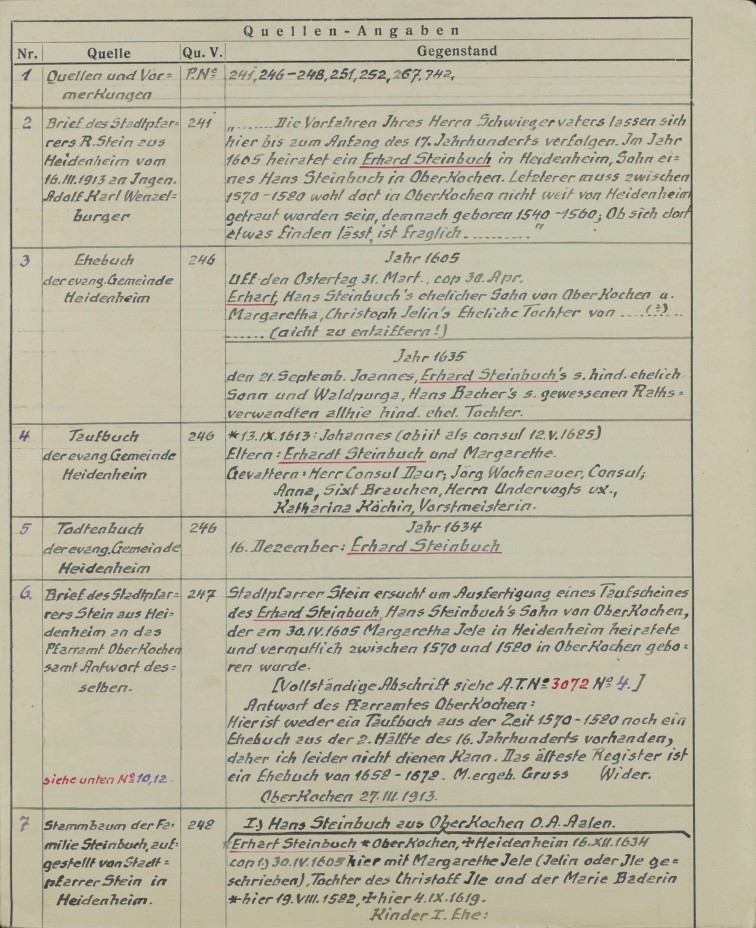 Quellen-Angaben
Nr. Quelle Qu. V. Gegenstand
1 Quellen und Vor= P.Nº 241, 246-248, 251, 252, 267, 742,
merkungen
2 Brief des Stadtpfar= 241 „........Die Vorfahren Ihres Herrn Schwiegervaters lassen sich
rers R. Stein zus hier bis zum Anfang des 17. Jahrhunderts verfolgen. Im Jahr
Heidenheim vom 1605 heiratet ein Erhard Steinbuch in Heidenheim, Sohn ei=
16.III.1913 an Ingen. nes Hans Steinbuch in OberKochen. Letzterer muss zwischen
Adolf Karl Wenzel= 1570-1580 wohl dort in OberKochen nicht weit von Heidenheim
burger getraut worden sein, demnach geboren 1540-1560; Ob sich dort
etwas finden lässt, ist fraglich..........."
3 Ehebuch 246 Jahr 1605
der evang. Gemeinde Uff den Ostertag 31. Mart., cop 30. Apr.
Heidenheim Erhart, Hans Steinbuch's ehelicher Sohn von OberKochen u.
Margaretha, Christoph Jelin's Eheliche Tochter von ....(?)..
...... (nicht zu entziffern!)
Jahr 1635
den 21. Septemb. Joannes, Erhard Steinbuch's s. hind. ehelich
Sonn und Waldpurga, Hans Bacher's s. gewessenen Raths=
verwandten allhie hind. ehel. Tochter.
4 Taufbuch 246 *13.IX.1613: Johannes (obiit als consul 12.V.1685)
der evang. Gemeinde Eltern: Erhardt Steinbuch und Margarethe.
Heidenheim Gevattern: Herr Consul Daur; Jörg Wochenauer, Consul;
Anna, Sixt Brauchen, Herrn Undervogts ux.,
Katharina Kächin, Vorstmeisterin.
5 Todtenbuch 246 Jahr 1634
der evang. Gemeinde 16. Dezember: Erhard Steinbuch
Heidenheim
6. Brief des Stadtpfar= 247 Stadtpfarrer Stein ersucht um Ausfertigung eines Taufscheines
rers Stein aus Hei= des Erhard Steinbuch, Hans Steinbuch's Sohn von OberKochen,
denheim an das der am 30.IV.1605 Margaretha Jele in Heidenheim heiratete
Pfarramt OberKochen und vermutlich zwischen 1570 und 1580 in OberKochen gebo=
samt Antwort des= ren wurde.
selben. [Vollständige Abschrift siehe A.T.Nº 3072 Nº 4.]
Antwort des Pfarramtes OberKochen:
Hier ist weder ein Taufbuch aus der Zeit 1570-1580 noch ein
Ehebuch aus der 2. Hälfte des 16. Jahrhunderts vorhanden,
daher ich leider nicht dienen Kann. Das älteste Register ist
siehe unten Nº 10,12. ein Ehebuch von 1658-1678. M. ergeb. Gruss Wider.
OberKochen 27.III.1913.
7 Stammbaum der Fa= 248 I.) Hans Steinbuch aus OberKochen O.A. Aalen.
milie Steinbuch, auf= Erhart Steinbuch * OberKochen, + Heidenheim 16.XII.1634
gestellt von Stadt= cop 1) 30.IV.1605 hier mit Margarethe Jele (Jelin oder Jle ge=
pfarrer Stein in schrieben), Tochter des Christoff Jle und der Marie Baderin
Heidenheim. * hier 19.VIII.1582, + hier 4.IX.1619.
Kinder I. Ehe: